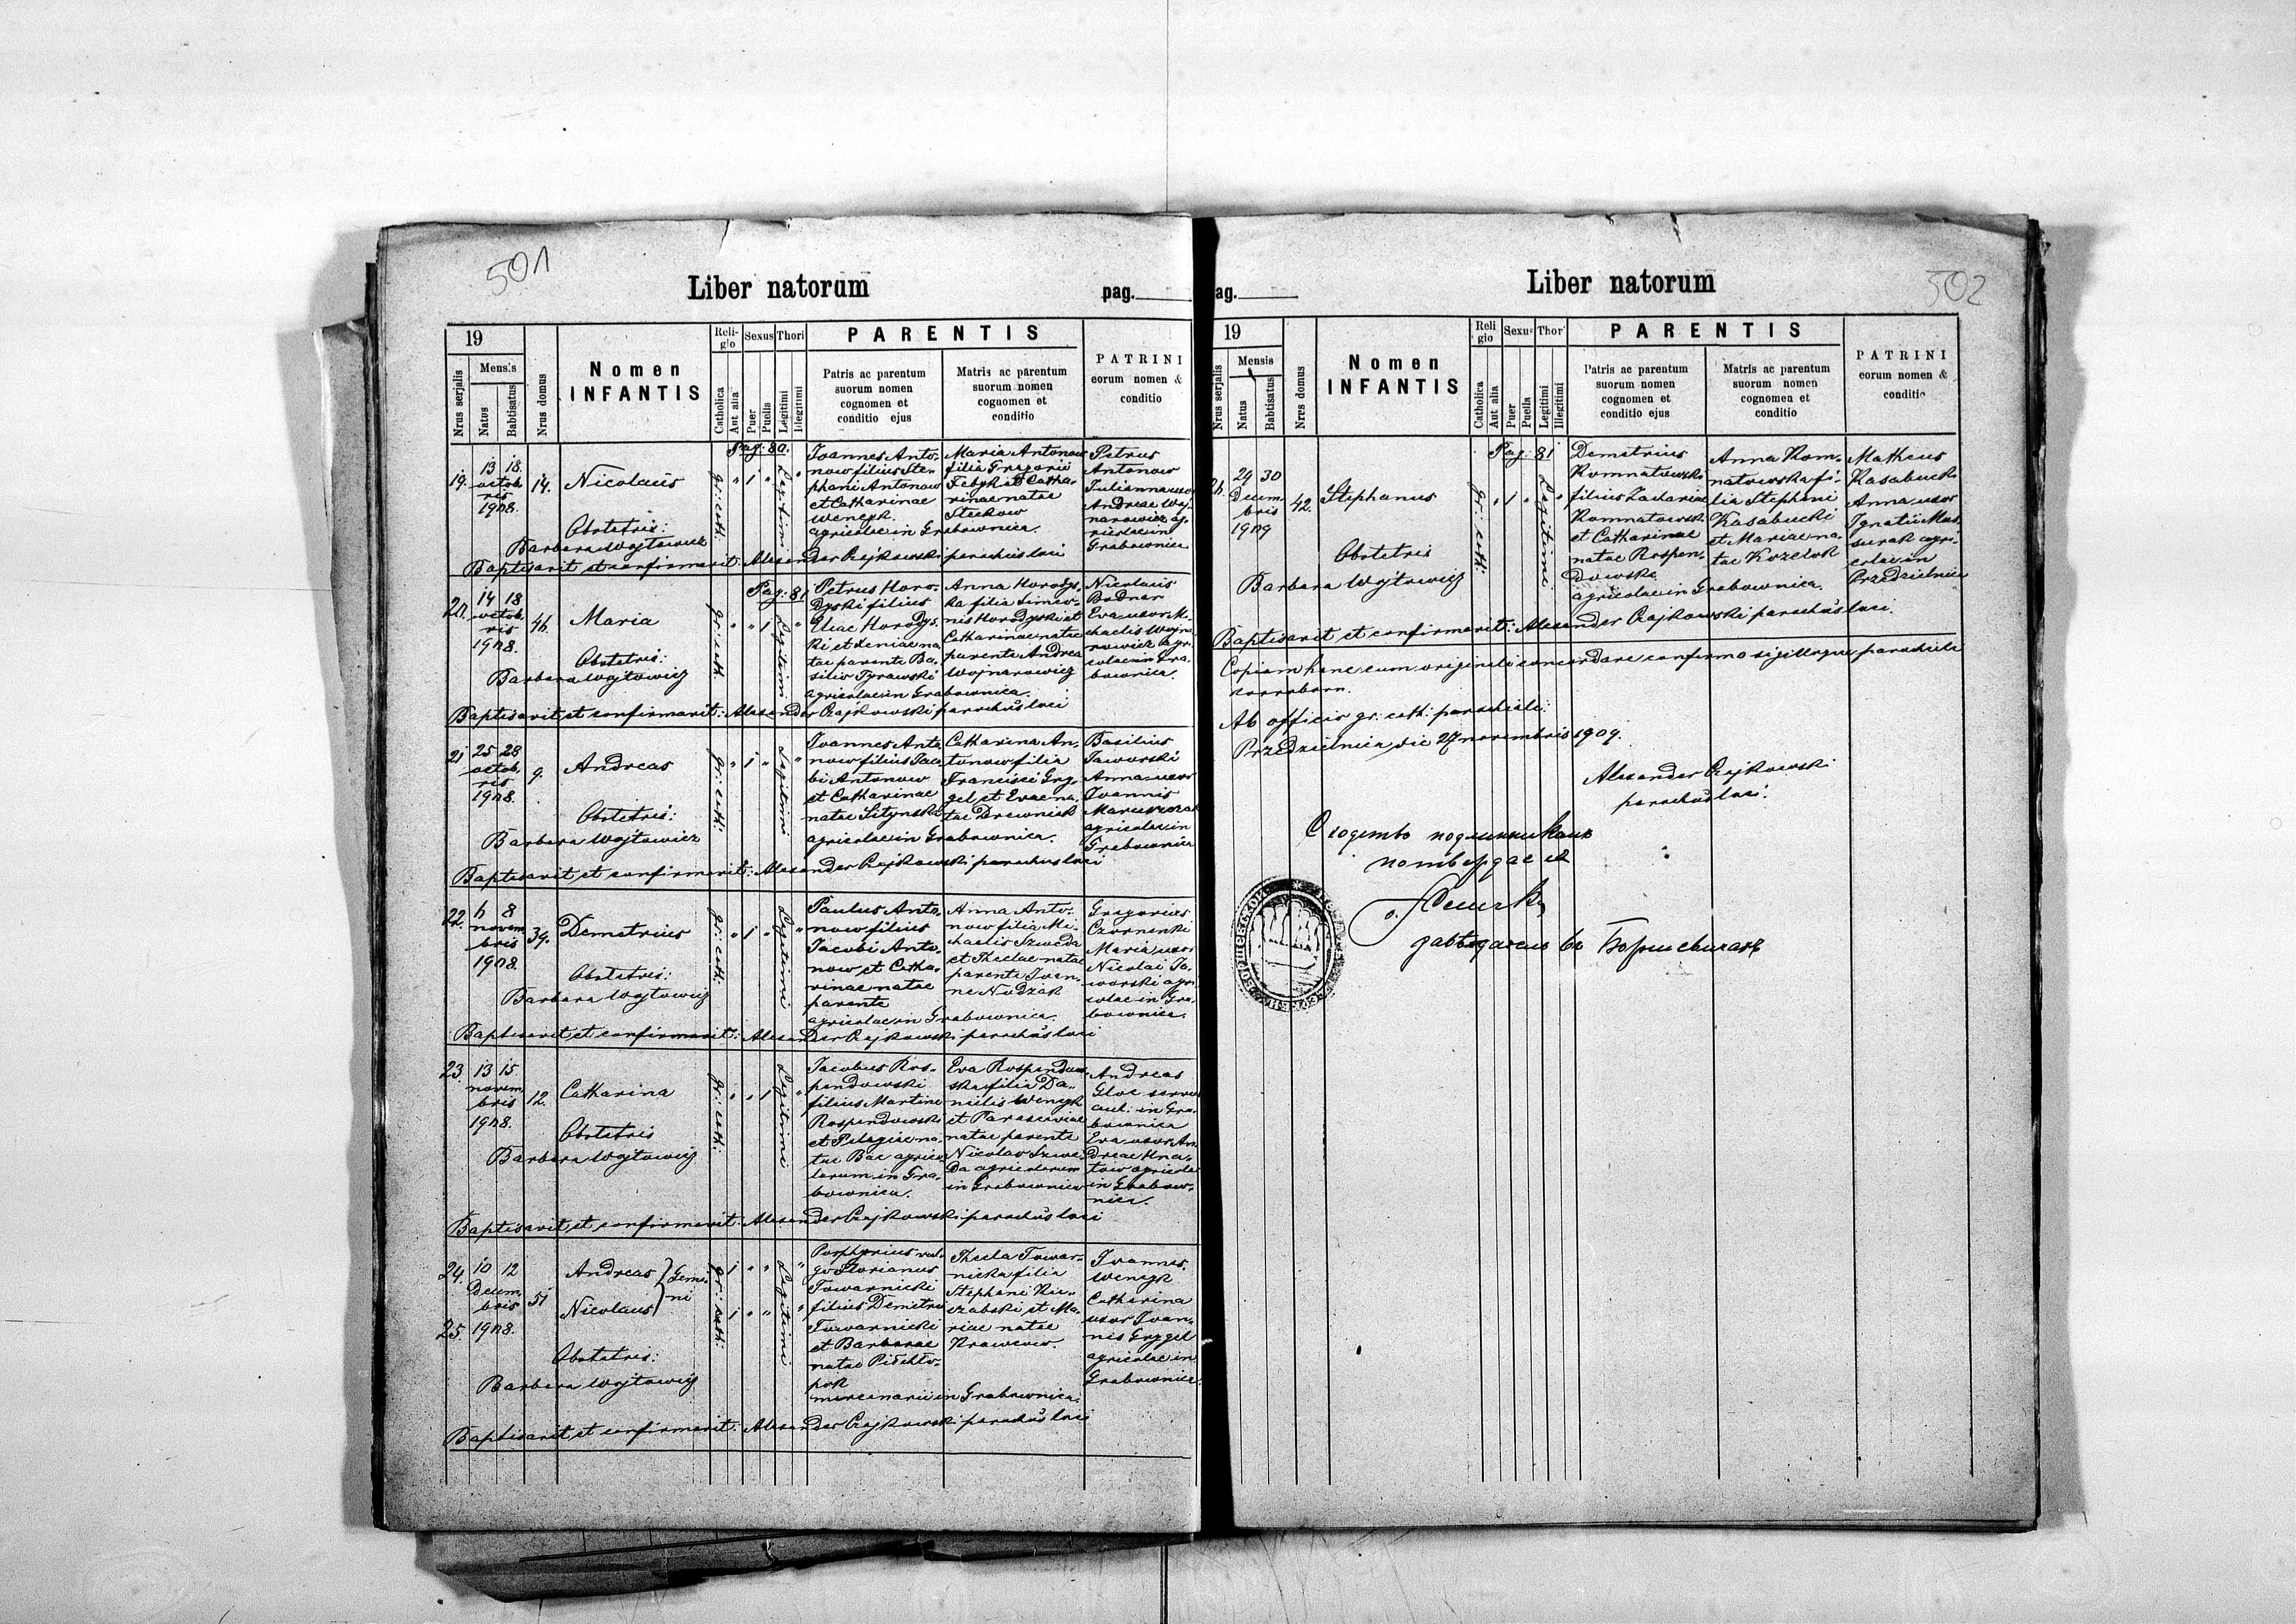 501
Liber natorum
pag.
19
Mensis
Nrus serjalis
Natus
Babtisatus
Nrus domus
Nomen
INFANTIS
Reli-
gio
Catholica
Aut alia
Sexus
Puer
Puella
Thori
Legitimi
Illegitimi
PARENTIS
Patris ac parentum
suorum nomen
cognomen et
conditio ejus
Matris ac parentum
suorum nomen
cognomen et
conditio
PATRINI
eorum nomen &
conditio
Pag: 80.
19.
13 18.
octob.
ris
1908.
14.
Nicolaus
Obstetris:
Barbara Wojtowicz
gr: cath:
" 1 "
Legitimi "
Ioannes Anto-
now filius Ste-
phani Antonow
et Catharinae
Wenyk.
agricolae in Grabownica.
Maria Antonow
filia Gregorii
Febyk et Catha-
rinae natae
Steckow
Petrus
Antonow
Julianna uxor
Andreae Woj-
narowicz ag-
ricolae in
Grabownica
Baptisavit et confirmavit: Alexander Czajkowski parochus loci
Pag: 81
20.
14 18
octob.
ris
1908.
46.
Maria
Obstetris:
Barbara Wojtowicz
gr: cath:
" " 1
Legitimi "
Petrus Horo-
dyski filius
Eliae Horodys-
ki et Xeniae na
tae parente Ba-
silio Tyrawski
agricolae in Grabownica.
Anna Horodys-
ka filia Simeo-
nis Horodyski et
Catharinae natae
parente Andrea
Wojnarowicz
Nicolaus
Bodnar
Eva uxor Mi-
chaelis Wojna
rowicz agri-
colae in Gra-
bownica.
Baptisavit et confirmavit: Alexander Czajkowski parochus loci
21
25 28
octob.
ris
1908.
9.
Andreas
Obstetris:
Barbara Wojtowicz
gr: cath:
" 1 "
Legitimi "
Ioannes Anto
now filius Jaco-
bi Antonow
et Catharinae
natae Sitynska
agricolae in Grabownica.
Catharina An-
tonow filia
Francisci Gry-
gel et Evae na-
tae Drewniak
Basilius
Jaworski
Anna uxor
Ioannis
Maruszczak
agricolae in
Grabownica
Baptisavit et confirmavit: Alexander Czajkowski parochus loci
22.
6 8
novem
bris
1908.
39.
Demetrius
Obstetris:
Barbara Wojtowicz
gr: cath:
" 1 "
Legitimi "
Paulus Anto-
now filius
Jacobi Anto-
now et Catha-
rinae natae
parente
agricolae in Grabownica.
Anna Anto-
now filia Mi-
chaelis Szweda
et Theclae natae
parente Ioan-
ne Nudzak
Gregorius
Czorninki
Maria uxor
Nicolai Ja-
worski agri
colae in Gra-
bownica.
Baptisavit et confirmavit: Alexander Czajkowski parochus loci
23.
13 15
novem
bris
1908.
12.
Catharina
Obstetris
Barbara Wojtowicz
gr: cath:
" " 1
Legitimi "
Jacobus Ros-
pendowski
filius Martini
Rospendowski
et Pelagiae na-
tae Bac agrico-
larum in Gra-
bownica.
Eva Rospendow-
ska filia Da-
nielis Wenyk
et Parasceviae
natae parente
Nicolao Szwe-
da agricolarum
in Grabownica
Andreas
Gloc servus
aul: in Gra-
bownica
Eva uxor An-
dreae Hna-
tow agricolae
in Grabow-
nica.
Baptisavit et confirmavit: Alexander Czajkowski parochus loci
24.
25.
10 12
Decem
bris
1908.
51
Andreas
Nicolaus
Gemi-
ni
Obstetris:
Barbara Wojtowicz
gr: cath:
1 " "
1 " "
Legitimi "
Porphyrius vul-
go Florianus
Towarnicki
filius Demetrii
Towarnicki
et Barbarae
natae
mercenarii in Grabownica.
Thecla Towar-
nicka filia
Stephani
et Ma-
riae natae
Krawcow.
Ioannes
Wenyk
Catharina
uxor Ioan-
nis Grygel
agricolae in
Grabownica.
Baptisavit et confirmavit: Alexander Czajkowski parochus loci
502
ag.
Liber natorum
19
Mensis
Nrus serjalis
Natus
Babtisatus
Nrus domus
Nomen
INFANTIS
Reli
gio
Catholica
Aut alia
Sexus
Puer
Puella
Thor
Legitimi
Illegitimi
PARENTIS
Patris ac parentum
suorum nomen
cognomen et
conditio ejus
Matris ac parentum
suorum nomen
cognomen et
conditio
PATRINI
eorum nomen &
conditio
Pag: 81
26.
29 30
Decem
bris
1909
42.
Stephanus
Obstetris
Barbara Wojtowicz
gr: cath:
" 1 "
Legitimi "
Demetrius
Komnatowski
filius Zachariae
Komnatowski
et Catharinae
natae Rospen-
dowska
agricolae in Grabownica.
Anna Kom-
natowska fi-
lia Stephani
Kasabucki
et Mariae na-
tae Kozelok
Matheus
Kasabucki
Anna uxor
Ignatii Maz-
surak agri-
colae in
Przedzielnica
Baptisavit et confirmavit: Alexander Czajkowski parochus loci.
Copiam hanc cum originali concordare confirmo sigilloque parochiali
roborem.
Ab officio gr: cath: parochiali:
Przedzielnica die 27 novembris 1909.
Alexander Czajkowski
parochus loci.
Сходство
потверждает
въ